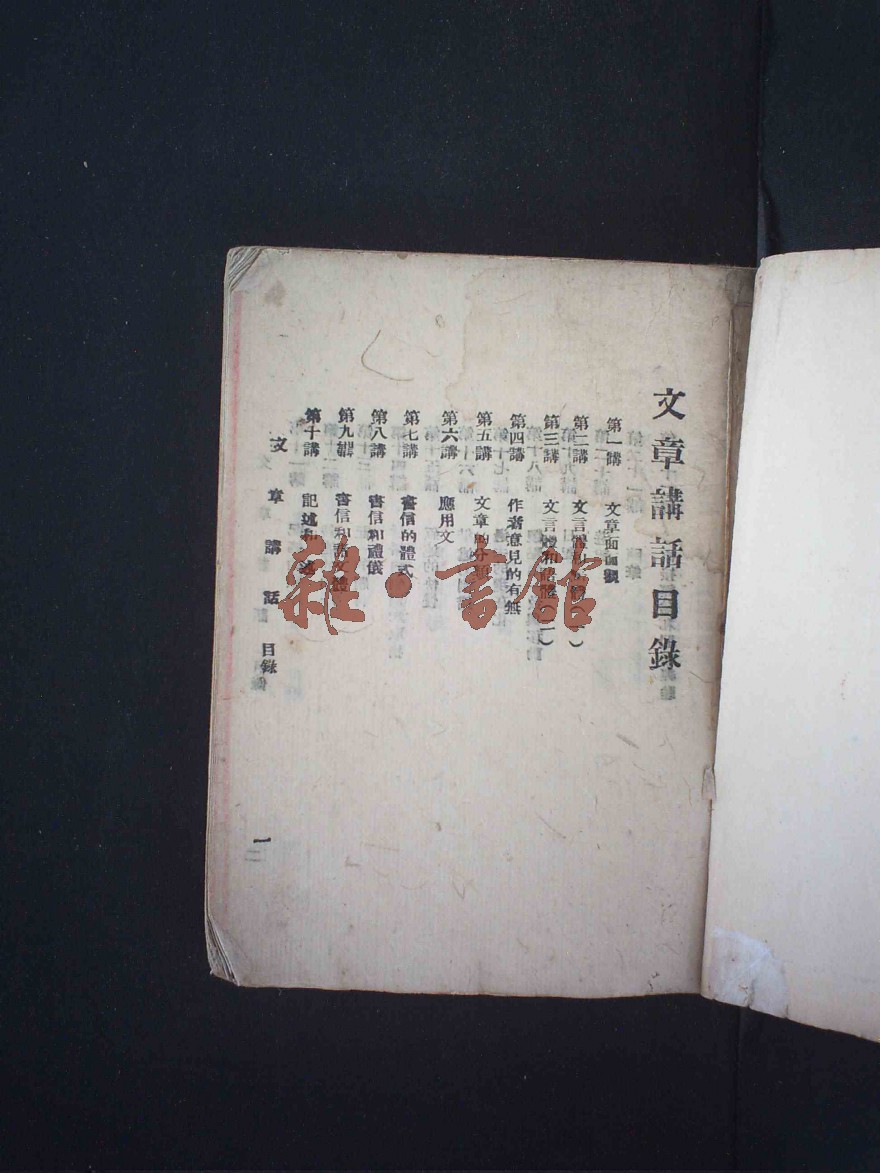 文章講話目錄
第一講 文章面面觀
第二講 文言體和語體(一)
第三講 文言體和語體(二)
第四講 作者意見的有無
第五講 文章的分類
第六講 應用文
第七講 書信的體式
第八講 書信和禮儀
第九講 書信和語文體
第十講 記述和敍述
文章講話 目錄
一
雜·書館